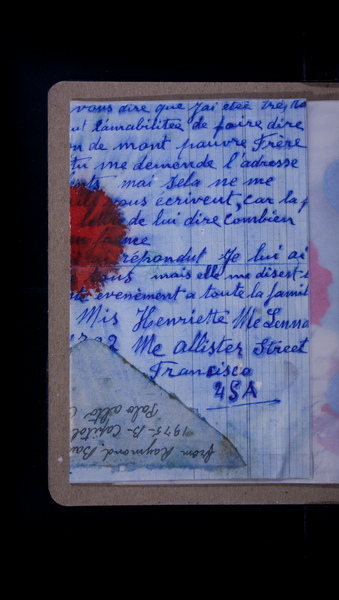 vous dire que j'ai etée trés
l'amabilitée de faire dire
de mont pauvre Frère
tu me demende l'adresse
mai sela ne me
vous ecrivent, car la
de lui dire combien
france
répondut Je lui ai
vous mais elle me disest
evenèment a toute la famil
Mis Henriette Mc Lenna
2 Mc allister Street
Francisco
USA
from Raymond Ba
1975-B- Capitol
Palo alto C